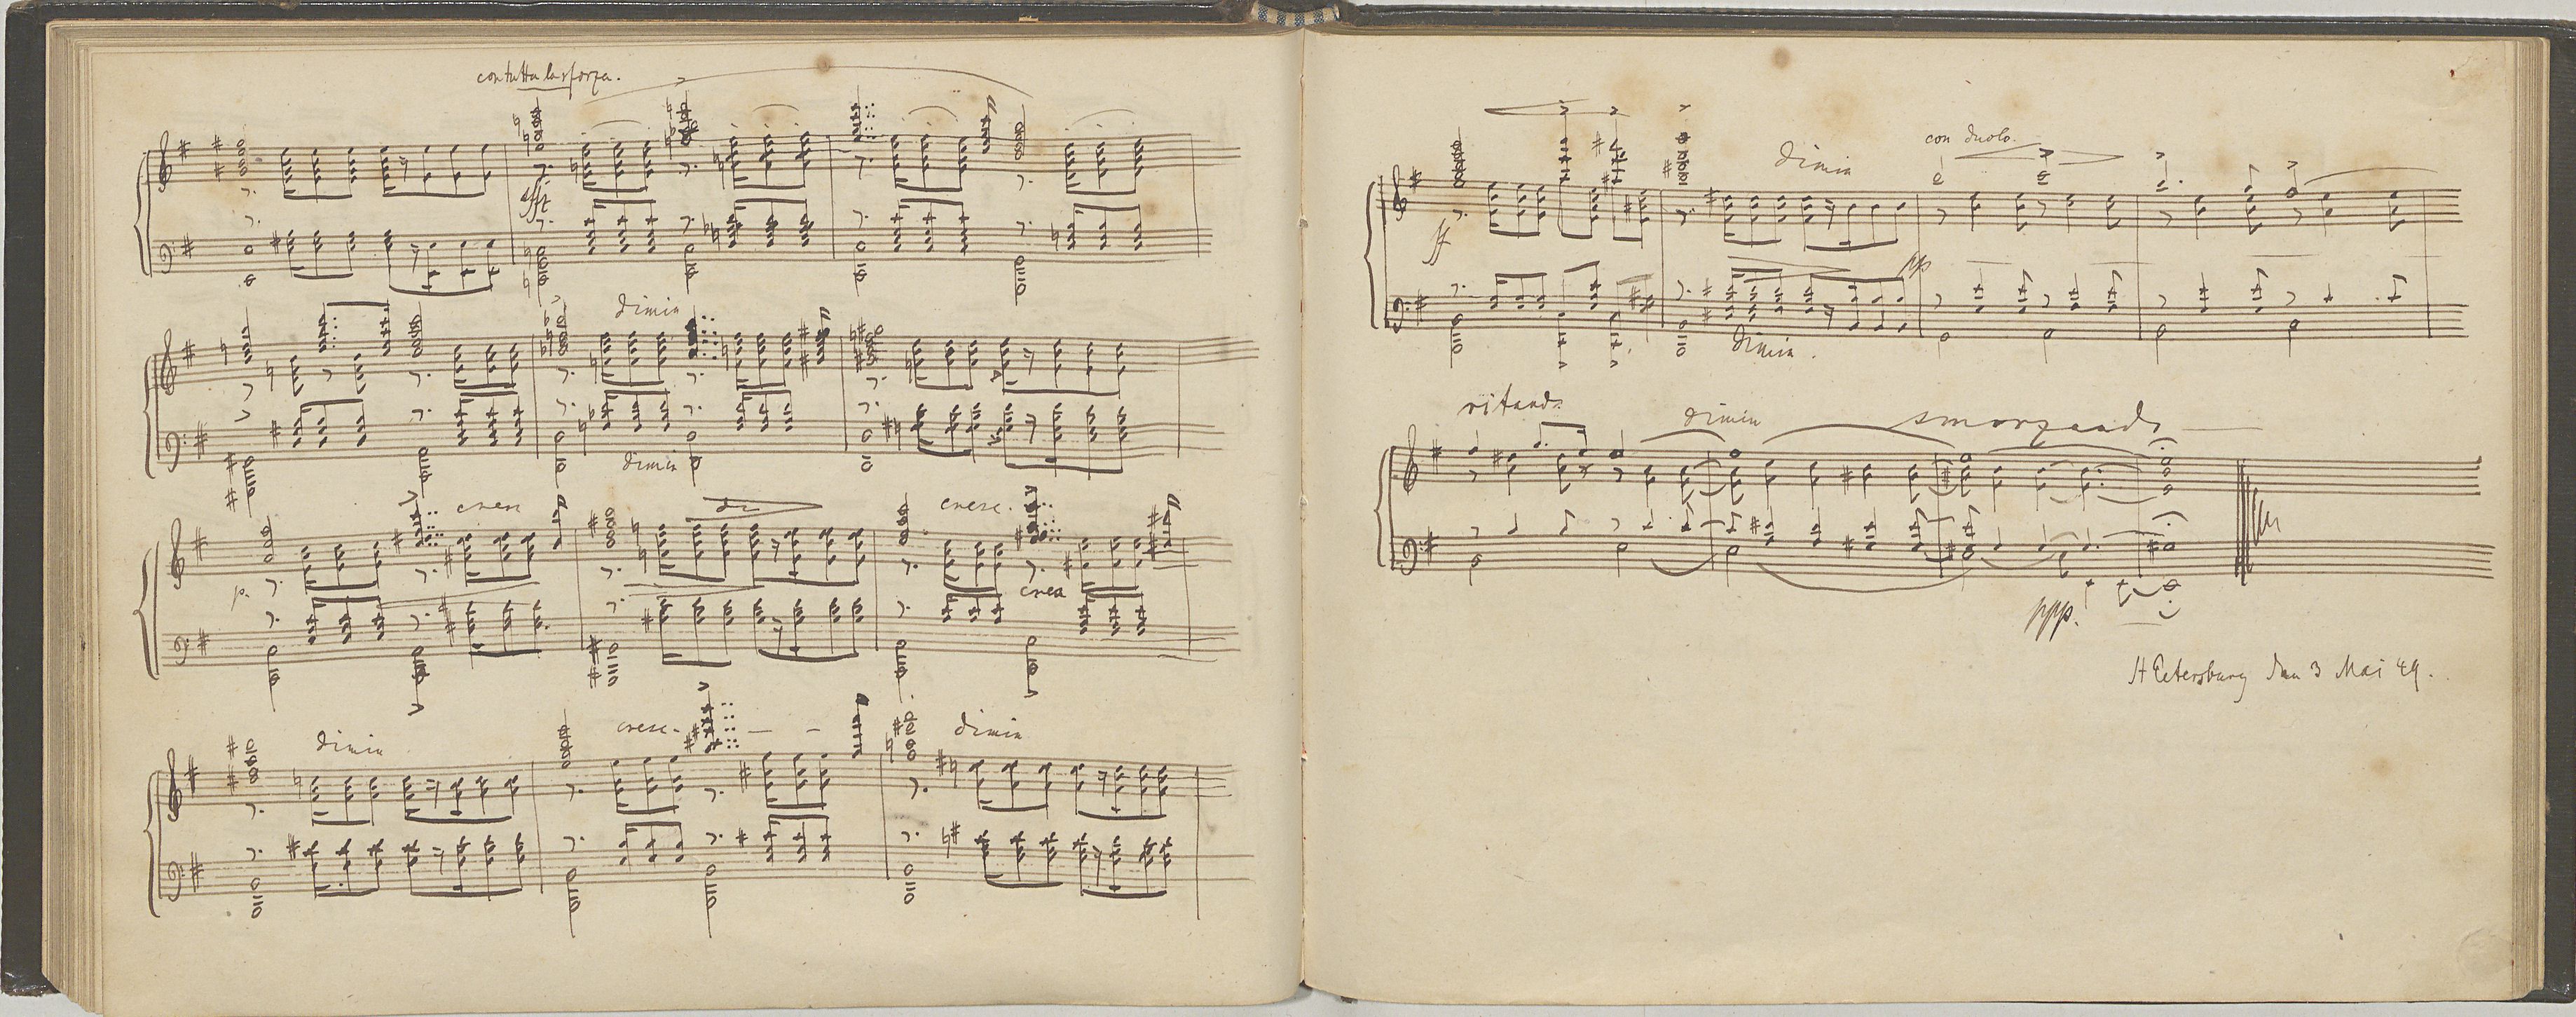 con tutta la sforza.
sfft
dimin
dimin
cresc
p.
cresc.
cresc
dimin
cresc.
dimin
dimin
con duolo.
ff
pp
dimin.
ritand.
dimin
smorzando
ppp.
St Petersburg den 3 Mai 49.